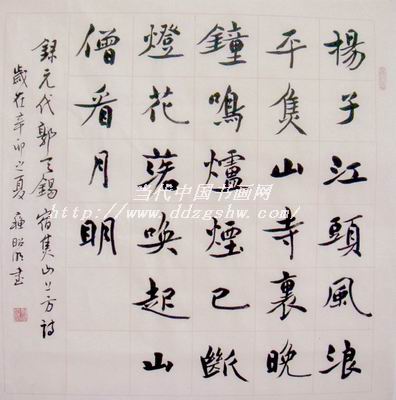 楊子江頭風浪
平焦山寺裏晚
鐘鳴爐煙已斷
燈花落喚起山
僧看月明
錄元代郭天錫宿焦山上方詩
歲在辛卯之夏 書
当代中国书画网
http://www.ddzgshw.com/